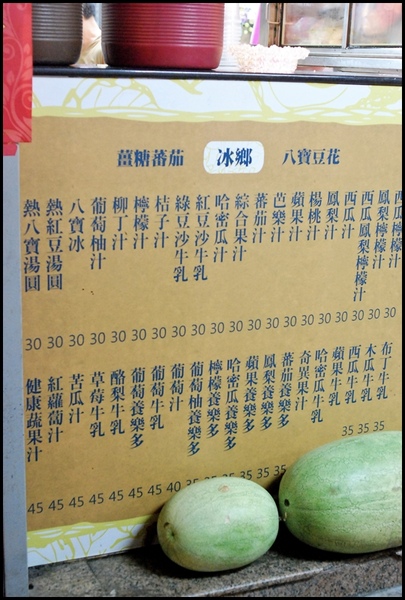 薑糖蕃茄 冰鄉 八寶豆花
西瓜檸檬汁
鳳梨檸檬汁 30
西瓜鳳梨檸檬汁 30
西瓜汁 30
鳳梨汁 30
楊桃汁 30
蘋果汁 30
芭樂汁 30
蕃茄汁 30
綜合果汁 30
哈密瓜汁 30
紅豆沙牛乳 30
綠豆沙牛乳 30
桔子汁 30
檸檬汁 30
柳丁汁 30
葡萄柚汁 30
八寶冰 30
熱紅豆湯圓 30
熱八寶湯圓 30
布丁牛乳 35
木瓜牛乳 35
西瓜牛乳 35
蘋果牛乳
哈密瓜牛乳
奇異果汁
蕃茄養樂多 35
鳳梨養樂多 35
蘋果養樂多 35
哈密瓜養樂多 35
檸檬養樂多 35
葡萄柚養樂多 35
葡萄汁 40
葡萄牛乳 45
葡萄養樂多 45
酪梨牛乳 45
草莓牛乳 45
苦瓜汁 45
紅蘿蔔汁 45
健康蔬果汁 45